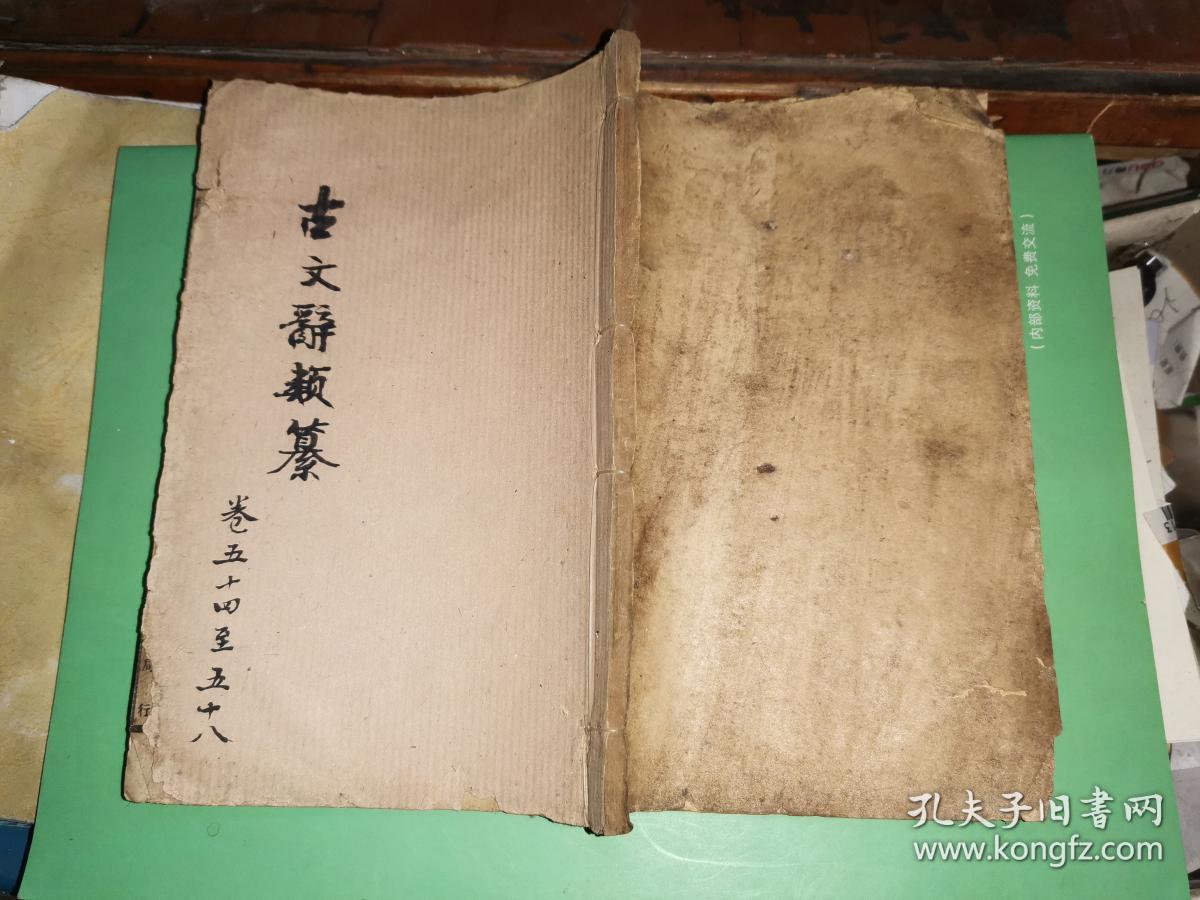 古文辭類纂
卷五十四至五十八
行
(内部资料 免费交流)
孔夫子旧书网
www.kongfz.com